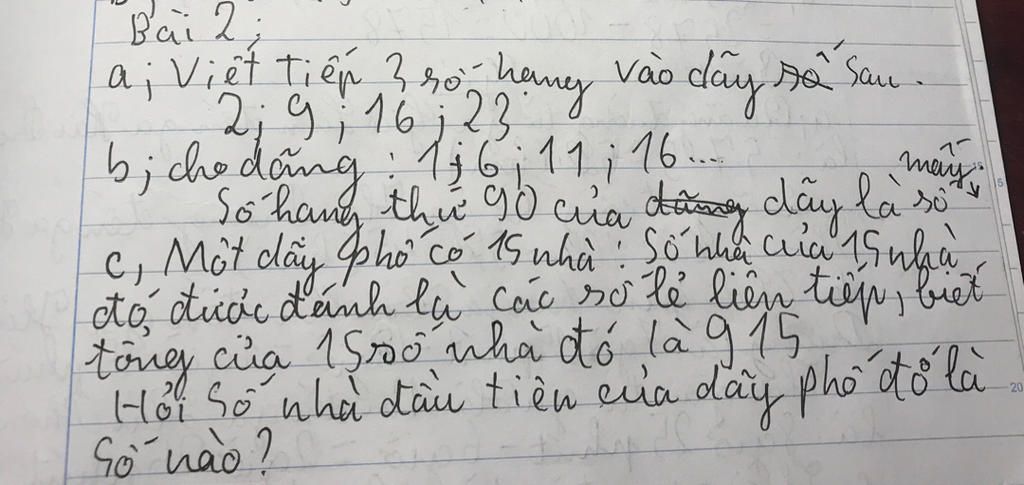 Bài 2;
a; Viết tiếp 3 số hạng vào dãy số sau.
2; 9; 16; 23
b; cho dãng: 1; 6; 11; 16...
Số hang thứ 90 của dãng dãy là số mấy:
c, Một dãy phố có 15 nhà: Số nhà của 15 nhà
đó, được đánh là các số lẻ liên tiếp, biết
tổng của 15 số nhà đó là 915
Hỏi Số nhà đầu tiên của dãy phố đó là
Số nào?